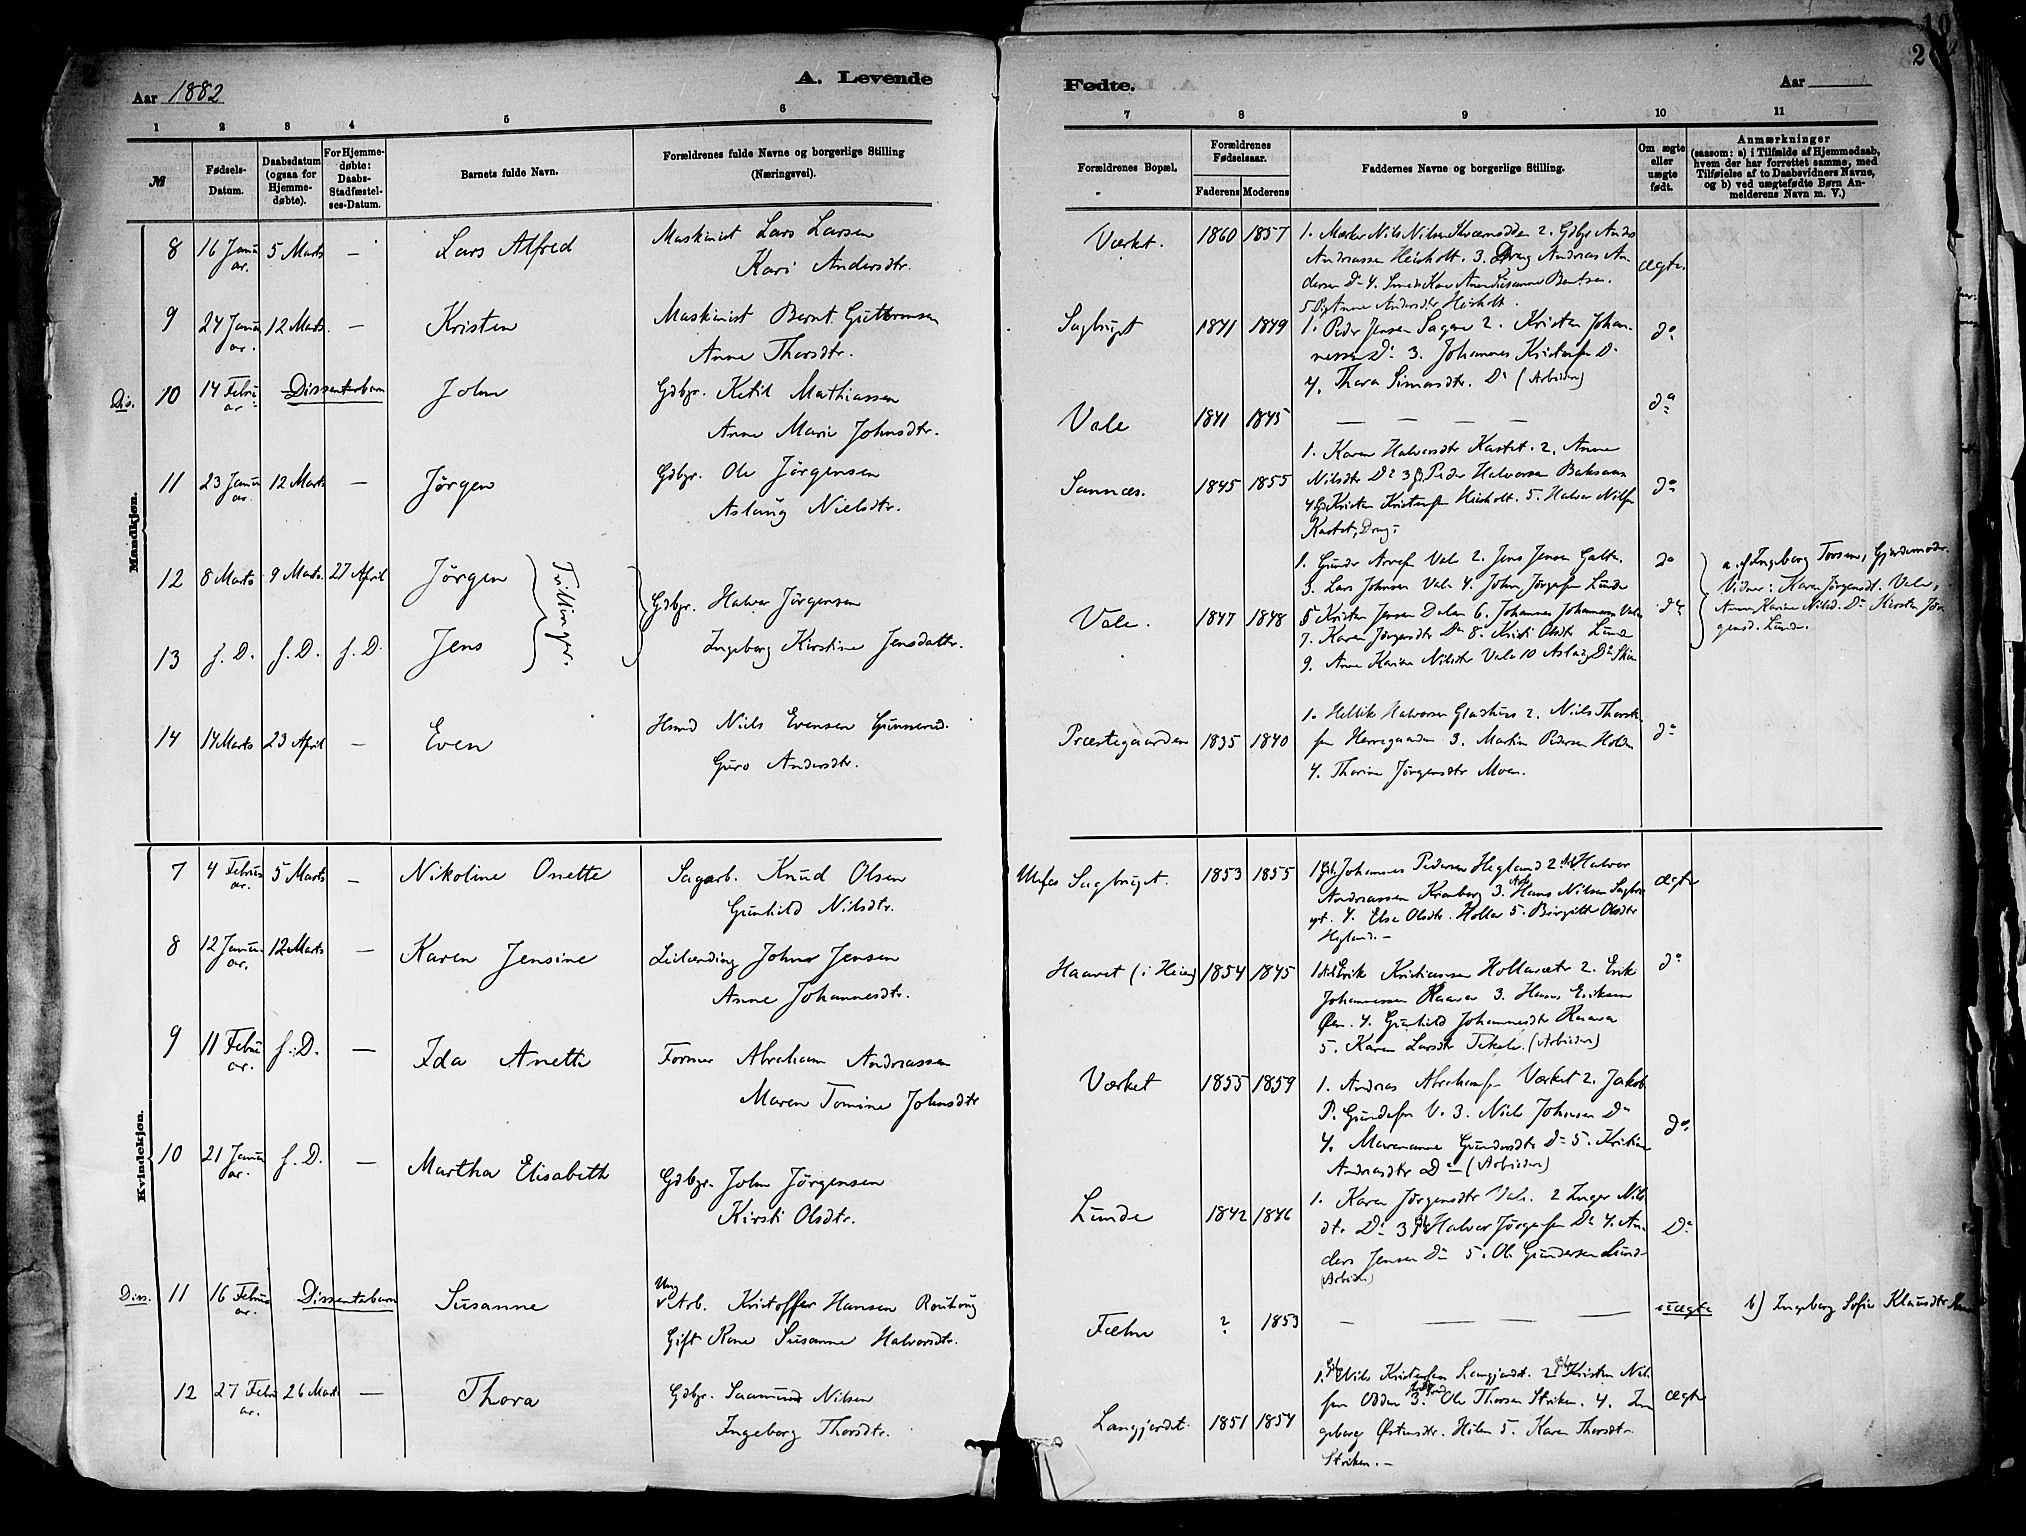 A. Levende
Aar 1882
1 2 3 4 5 6
№
Fødsels-Datum.
Daabsdatum (ogsaa for Hjemme-døbte).
For Hjemme-døbte: Daabs-Stadfæstel-ses-Datum.
Barnets fulde Navn.
Forældrenes fulde Navne og borgerlige Stilling (Næringsvei).
Mandkjøn.
8 16 Januar. 5 Marts — Lars Alfred Maskinist Lars Larsen
Kari Andersdtr.
9 24 Januar. 12 Marts — Kristen Maskinist Bernt Guttormsen
Anne Thorsdtr.
Dis. 10 14 Februar Dissenterbarn John Gdbgr. Ketil Mathiassen
Anne Marie Johnsdtr.
11 23 Januar. 12 Marts — Jørgen Gdbgr. Ole Jørgensen
Aslaug Nielsdtr.
12 8 Marts 9 Marts. 27 April Jørgen
Tvillinger.
Gdbgr. Halvor Jørgensen
13 f. D. f. D. f. D. Jens Ingeborg Kirstine Jensdatter.
14 14 Marts 23 April — Even Hsmd Niels Evensen
Guro Andersdtr.
Kvindekjøn.
7 4 Februar. 5 Marts — Nikoline Onette Sagarb. Knud Olsen
Gunhild Nilsdtr.
8 12 Januar. 12 Marts — Karen Jensine Leilænding Johne Jensen
Anne Johannesdtr.
9 11 Februar. f. D. — Ida Anette Former Abraham Andreassen
Maren Tomine Johnsdtr
10 21 Januar. f. D. — Martha Elisabeth Gdbgr. John Jørgensen
Kirsti Olsdtr.
Diss. 11 16 Februar. Dissenterbarn Susanne Ung Arb. Kristoffer Hansen
Gift Kone Susanne Halvorsdtr.
12 27 Februar. 26 Marts — Thora Gdbgr. Saamund Nilsen
Ingeborg Thorsdtr.
10
2
Fødte.
Aar
7 8 9 10 11
Forældrenes Bopæl.
Forældrenes Fødselsaar.
Faderens Moderens
Faddernes Navne og borgerlige Stilling.
Om ægte eller uægte født.
Anmærkninger
(saasom: a) i Tilfælde af Hjemmedaab, hvem der har forrettet samme, med Tilføielse af to Daabsvidners Navne, og b) ved uægtefødte Børn Anmelderens Navn m. V.)
Værket. 1860 1857 ægte.
5 Pige Anne Andersdtr Heisholt.
Sagbruget 1841 1849 1. Peder Jensen Sagene 2. Kristen Johan-
nessen Do 3. Johannes Kristensen Do
4. Thora Simonsdtr. Do (Arbeidere)
do
Vale 1841 1845 — — — — do
Sannæs. 1845 1855 1. Karen Halvorsdtr Kastet. 2. Anne
Nilsdtr Do 3 Peder Halvorsen
4 Kristen Kristensen Heisholt. 5. Halvor Nilsen
Kastet, Dreng.
do
Vale. 1847 1848 1. Gunder Vale 2. Jens Jensen
3. Lars Johnsen Vale 4. John Jørgensen Lunde
5 Kristen Jensen Dalen 6. Johannes Johannesen Vale
7. Karen Jørgensdtr Do 8. Kirsti Olsdtr Lunde
9. Anne Karine Nilsdtr Vale 10 Aslaug Do
do
do
a. af Ingeborg Torsen, Gjordemoder.
Vidner: Karen Jørgensdt. Vale,
Anne Karine Nilsd. Do Kirsten Jør-
gensd. Lunde.
Præstegaarden 1835 1840 1. Halvorsen Glashus 2. Niels Thorsen
Herregaarden 3. Martin Pedersen Holden
4. Thorine Jørgensdtr Moen.
do
Ulefos Sagbruget. 1853 1855 1 Johannes Pedersen Hegland 2. Halvor
Andreassen Kronborg 3. Hans Nilsen Sagbru-
get. 4. Else Olsdtr. Holla 5. Birgitte Olsdtr
Hegland. —
ægte
Haavet (i Heien) 1854 1845 1 Erik Kristiansen Hollasæter 2. Erik
Johannessen 3. Hans Eriksen
Øen. 4. Gunhild Johannesdtr
5. Karen Larsdtr (Arbeidere)
do
Værket 1855 1859 1. Andreas Abrahamsen Værket 2. Jakob
P. Gundersen V. 3. Niels Johnsen Do
4. Marenanne Gundersdtr Do 5. Kristine
Andreasdtr Do — (Arbeidere)
do
Lunde 1842 1846 1. Karen Jørgensdtr Vale. 2 Inger Nils-
dtr. Do 3 Halvor Jørgensen Do 4. An-
ders Jensen Do 5. Ole Gundersen Lunde
(Arbeidere)
Do
Fæhn ? 1853 — — — — uægte b) Ingeborg Sofie Klausdtr
Langjordet 1851 1854 1. Nils Kristensen Langjordet. 2 Kristen Nil-
sen Odden 3. Ole Thorsen Striken. 4. In-
geborg Østensdtr. 5. Karen Thorsdtr
Striken. —
ægte